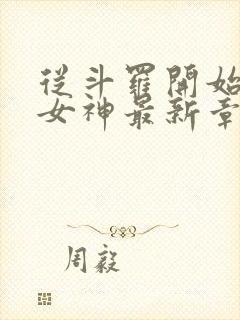 從斗羅開始
女神最新章
周毅